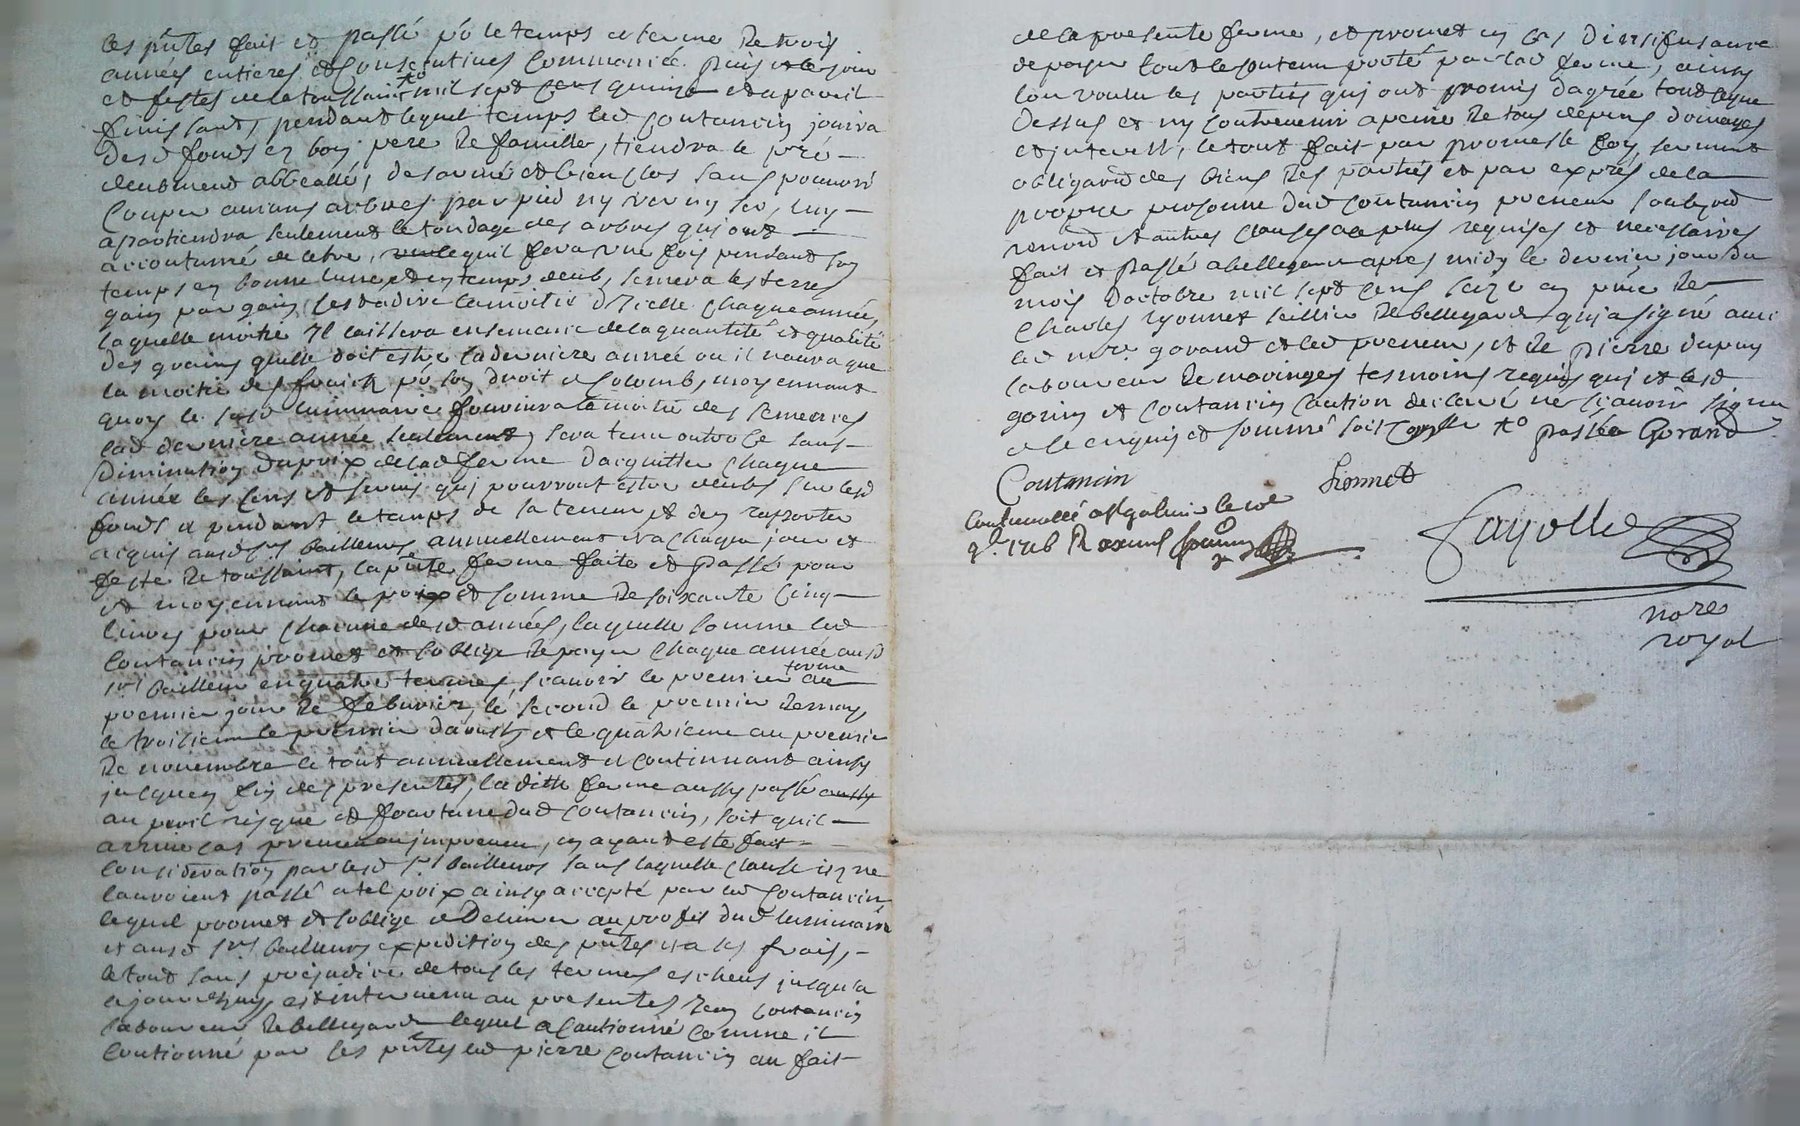 les pñtes fait et passé po.r le temps et terme de trois
années entieres et consecutives commancé puis le jour
et festes de la toussaint mil sept cens quinze et a pareil
finissant, pendant lequel temps led Coutancin jouira
desd fonds en bon pere de famille, tiendra le pré
deubment abbealle, desarmé et bien clos sans pouvoir
couper aucuns arbres par pied ny ver ny sec, luy
apartiendra seulement le tondage des arbres qui ont
accoutumé de l'etre, lequil fera une fois pendant son
temps en bonne lune et en temps deub, semera les terres
gain par gain, cest a dire la moitié d'icelle chaque année,
laquelle moitié Il laissera ensemancé de la quantité et qualité
des grains quelle doit estre la derniere année ou il n'aura que
la moitié des fruicts po.r son droit de colomb, moyennant
quoy le luminaire fournira la moitié des semences
lad derniere année seulement, sera tenu outre ce sans
diminution du prix de lad ferme d'acquitter chaque
année les cens et servis qui pourront estre deubs sur lesd
fonds et pendant le temps de sa tenue et d'en rapporter
acquis ausd srs bailleurs annuellement a chaque jour et
feste de toussaint, la pñte ferme faite et passé pour
et moyennant le prix et somme de soixante cinq
livres pour chacune desd années, laquelle somme led
Coutancin promet et s'oblige de payer chaque année ausd
srs bailleurs en quatre termes, scavoir le premier terme au
premier jour de febvrier, le second le premier de may,
le troisieme le premier d'aoust, et le quatrieme au premier
de novembre le tout annuellement et continuant ainsy
jusqu'en fin des presentes, laditte ferme aussy passé aussy
au peril risque et fourtune dud Coutancin, soit quil
arrive cas preveu ou inpreveu, en ayant esté fait
consideration par lesd srs bailleurs sans laquelle clause ils ne
l'auroient passé a tel prix ainsy accepté par led Coutancin
lequel promet et s'oblige de delivrer au profit dud luminaire
et ausd srs bailleurs expedition des pñtes et a ses frais,
le tout sans prejudice de tous les termes escheus jusqu'a
ce jourdhuy, est intervenu au presentes Jean Coutancin
laboureur de bellegarde lequel a cautionné comme il
cautionne par ces pñtes led pierre Coutancin au fait
de la presente ferme, et promet en cas d'insufisance
de payer tout le contenu porté par lad ferme, ainsy
l'on voulu les parties qui ont promis d'agrée tout ce que
dessus et ny contrevenir a peine de tous depens domages
et interest, le tout fait par promesse foy serment
obligation des biens des parties et par exprés de la
propre personne dud Coutancin preneur soubs
renond et autres clauses a ce plus requises et necessaires
fait et passé a bellegarde apres midy le dernier jour du
mois d'octobre mil sept cens seize en pñce de
Charles Lyonnet sellier de bellegarde qui a signé avec
led mre gorand et led preneur, et de pierre dupuy
laboureur de maringes tesmoins requis qui et lesd
gorin et Coutancin caution declaré ne scavoir signer
de ce enquis et sommé soit passée Gorand
Coutancin
Lionnet
Controollé a st galmier le
9bre 1716 R
fayolle
nore
royal